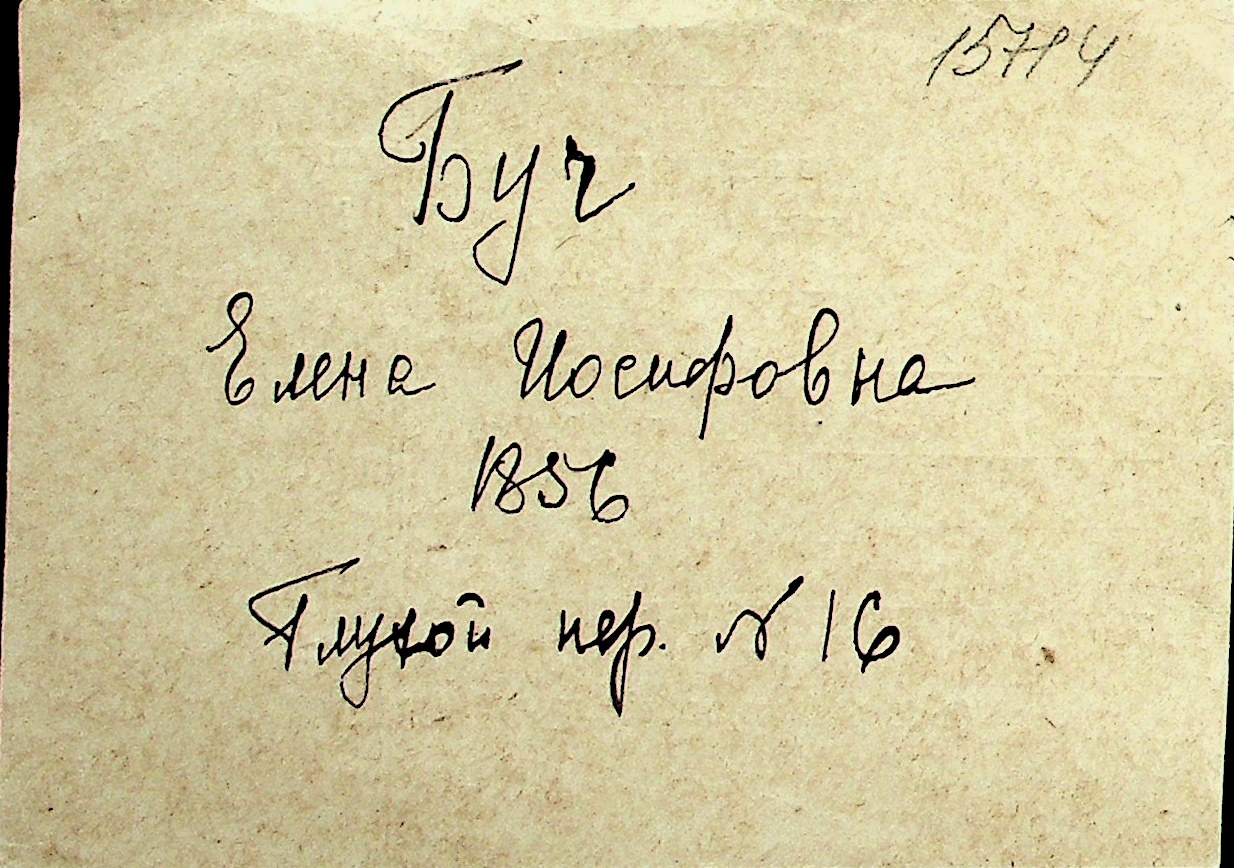 15714
Буч
Елена Иосифовна
1856
Глухой пер. № 16